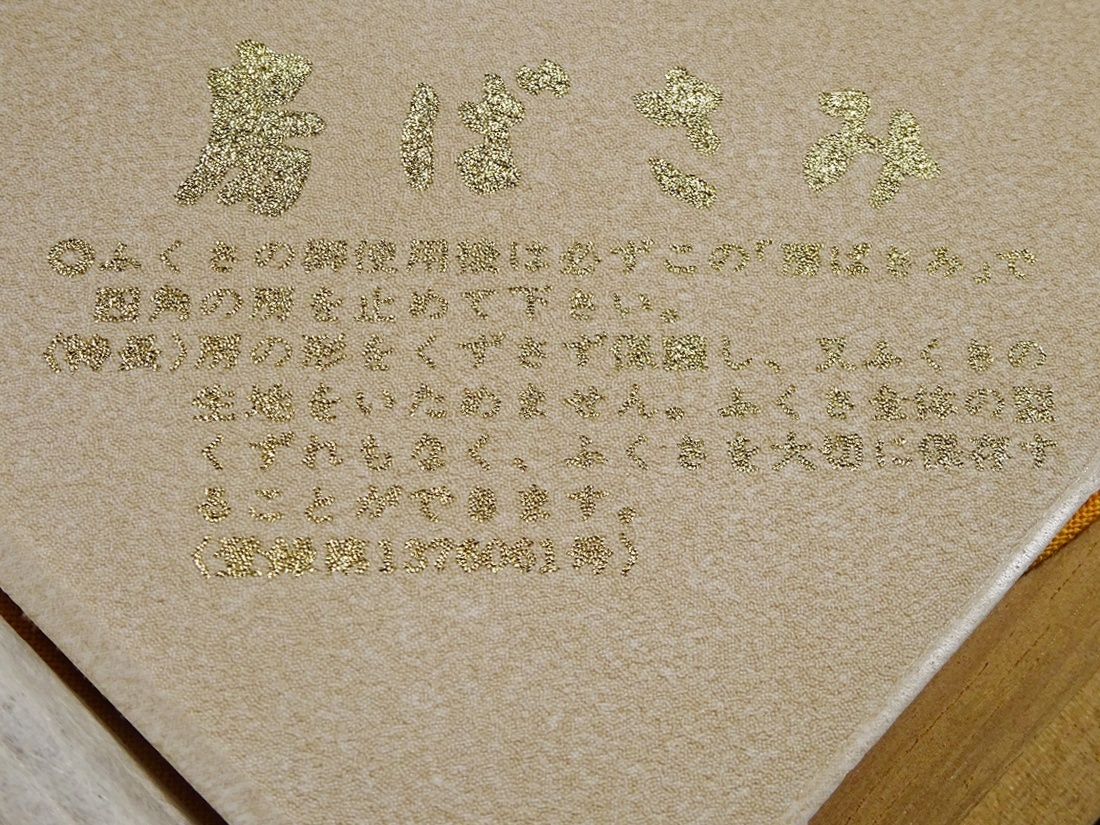 房ばさみ
◎ふくさの御使用後は必ずこの「房ばさみ」で
四角の房を止めて下さい。
(特長)房の形をくずさず保護し、又ふくさの
生地をいためません。ふくさ全体の型
くずれもなく、ふくさを大切に保存す
ることができます。
(登録第1376061号)